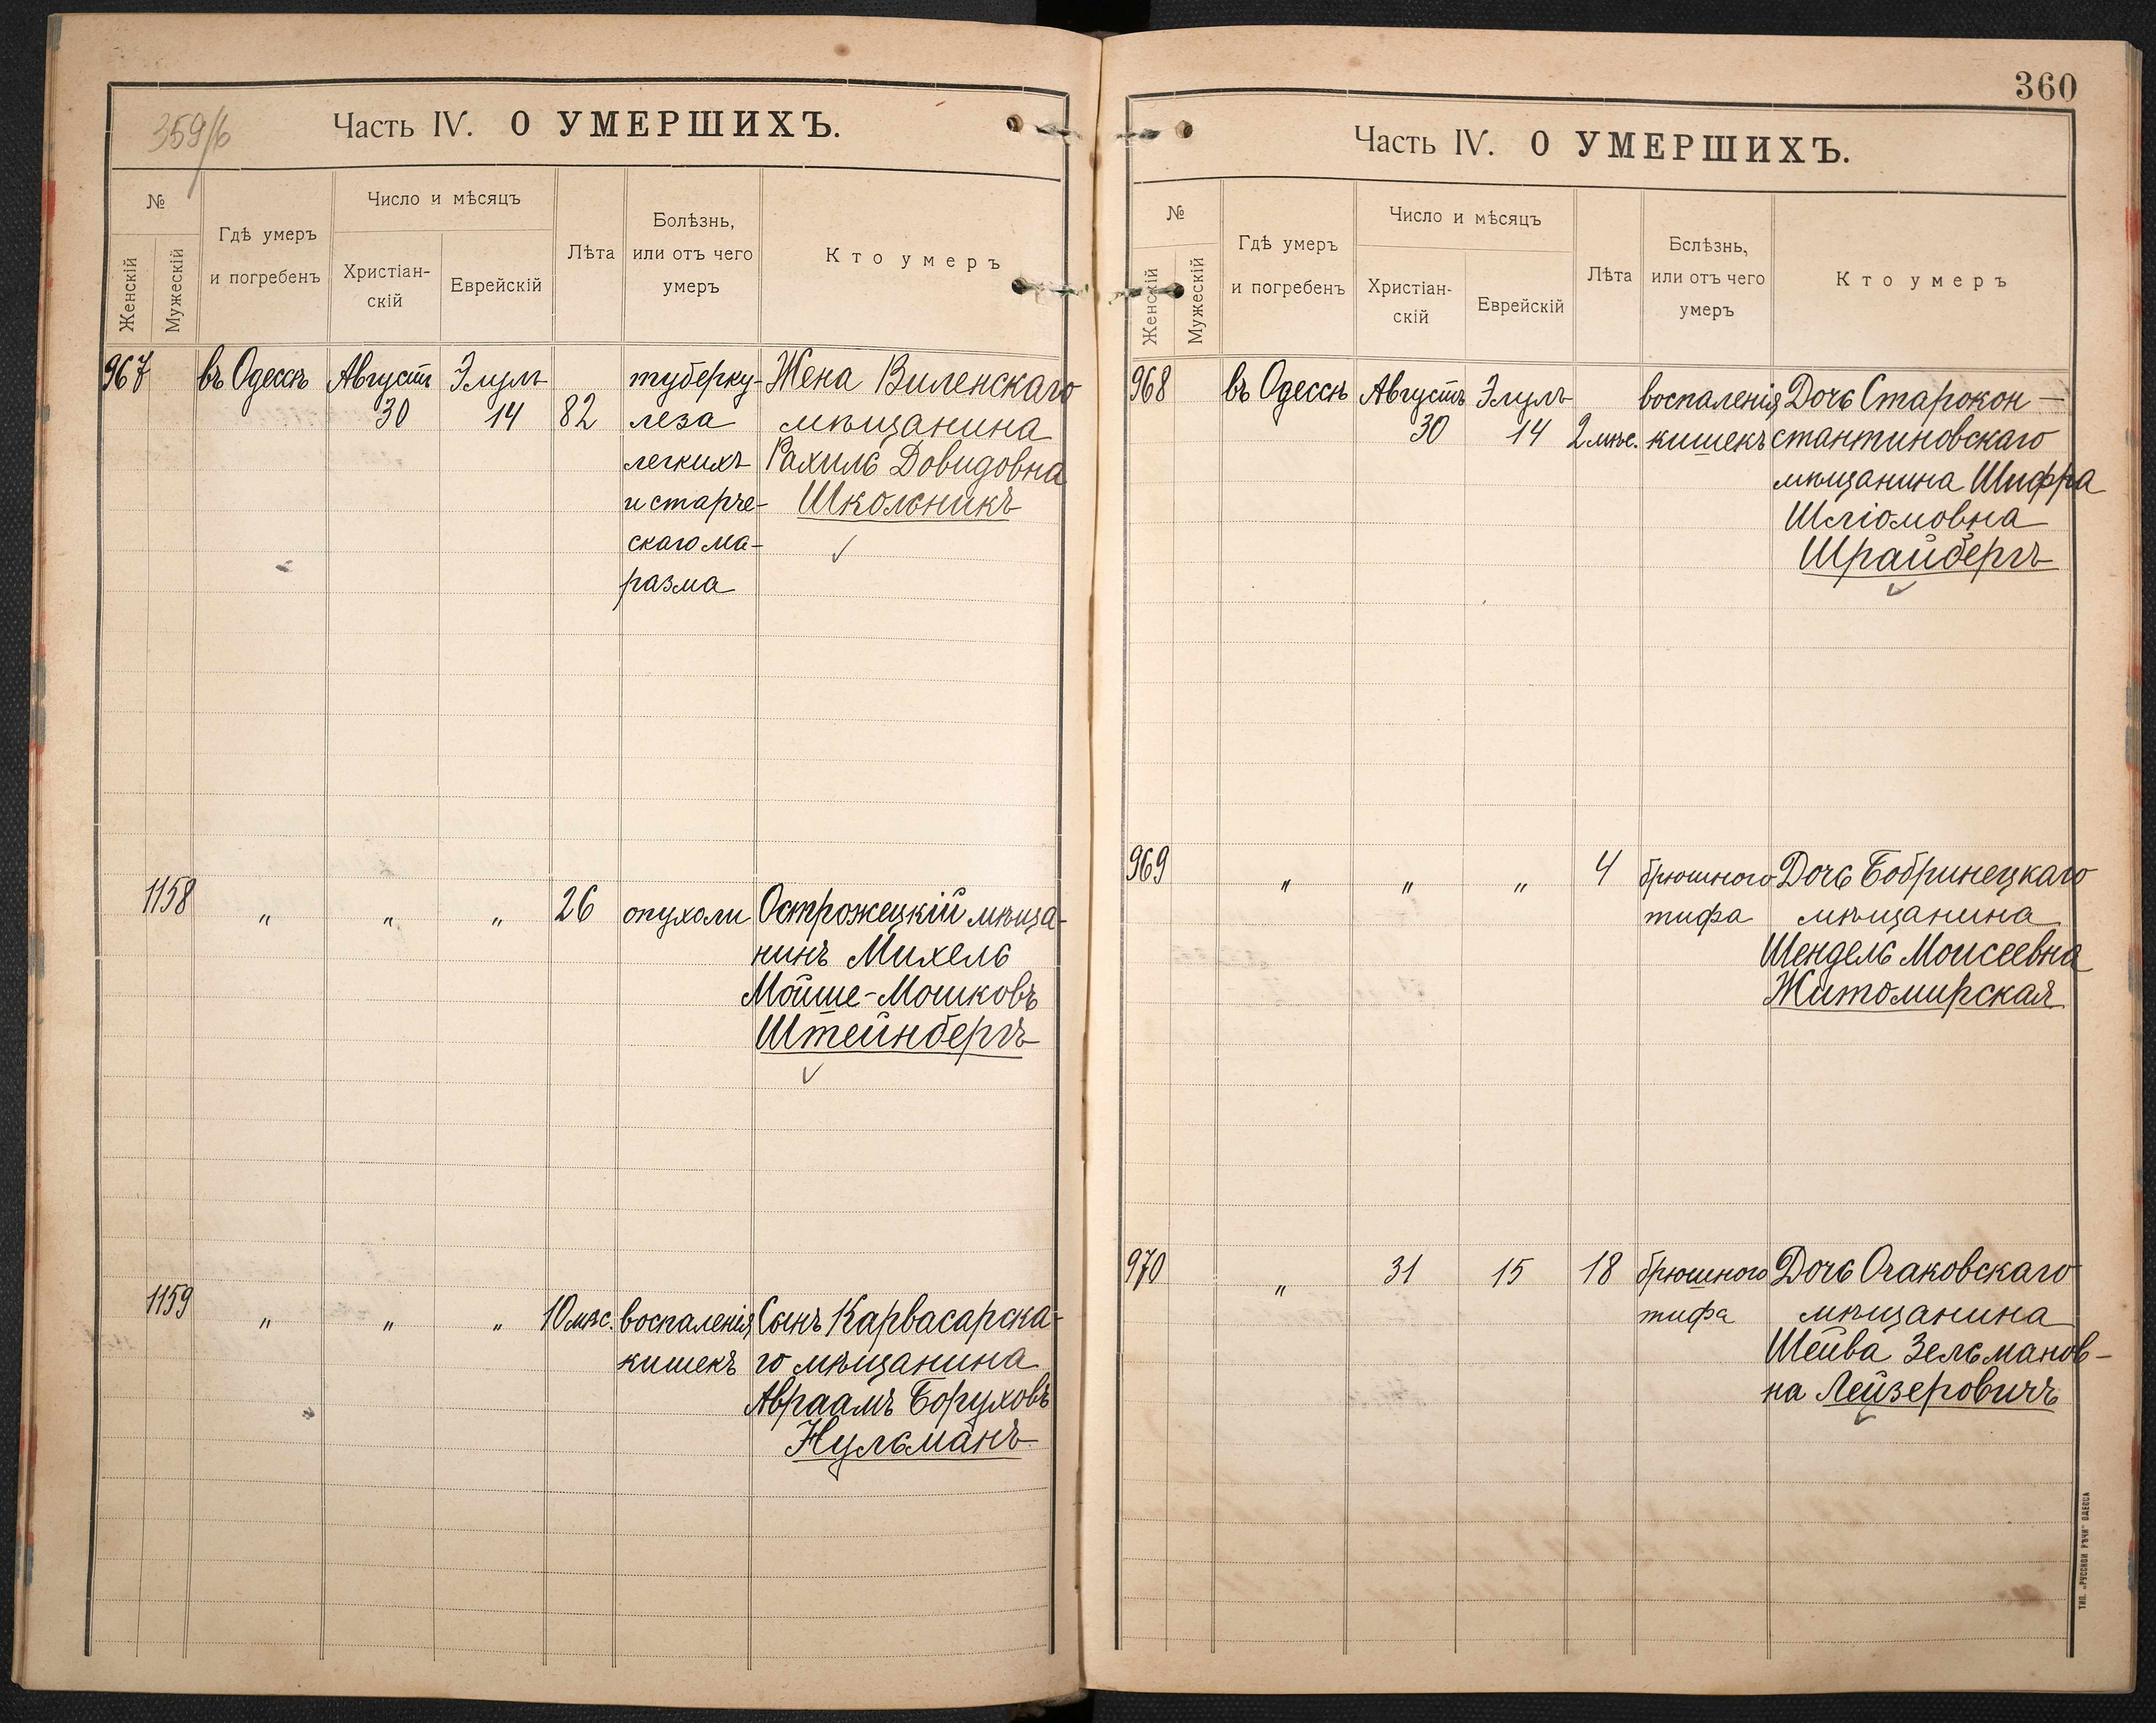 359/б
Часть IV. О УМЕРШИХЪ.
№
Женскій
Мужескій
Гдѣ умеръ
и погребенъ
Число и мѣсяцъ
Христіан-
скій
Еврейскій
Лѣта
Болѣзнь,
или отъ чего
умеръ
Кто умеръ
967 въ Одессѣ Августъ Элулъ туберку- Жена Виленскаго
30 14 82 леза мѣщанина
легкихъ Рахиль Довидовна
и старче- Школьникъ
скаго ма-
разма
1158 " " " 26 опухоли Острожецкій мѣща-
нинъ Михель
Мойше-Мошковъ
Штейнбергъ
1159 " " " 10 мѣс. воспаленія Сынъ Карвасарска-
кишекъ го мѣщанина
Авраамъ Боруховъ
Нульманъ
360
Часть IV. О УМЕРШИХЪ.
№
Женскій
Мужескій
Гдѣ умеръ
и погребенъ
Число и мѣсяцъ
Христіан-
скій
Еврейскій
Лѣта
Бслѣзнь,
или отъ чего
умеръ
Кто умеръ
968 въ Одессѣ Августъ Элулъ воспаленія Дочь Старокон-
30 14 2 мѣс. кишекъ стантиновскаго
мѣщанина Шифра
Шліомовна
Шрайбергъ
969 " " " 4 брюшного Дочь Бобринецкаго
тифа мѣщанина
Шендель Моисеевна
Житомирская
970 " 31 15 18 брюшного Дочь Очаковскаго
тифа мѣщанина
Шейва Зельманов-
на Лейзеровичъ
ТИП. „РУССКОЙ РѢЧИ" ОДЕССА